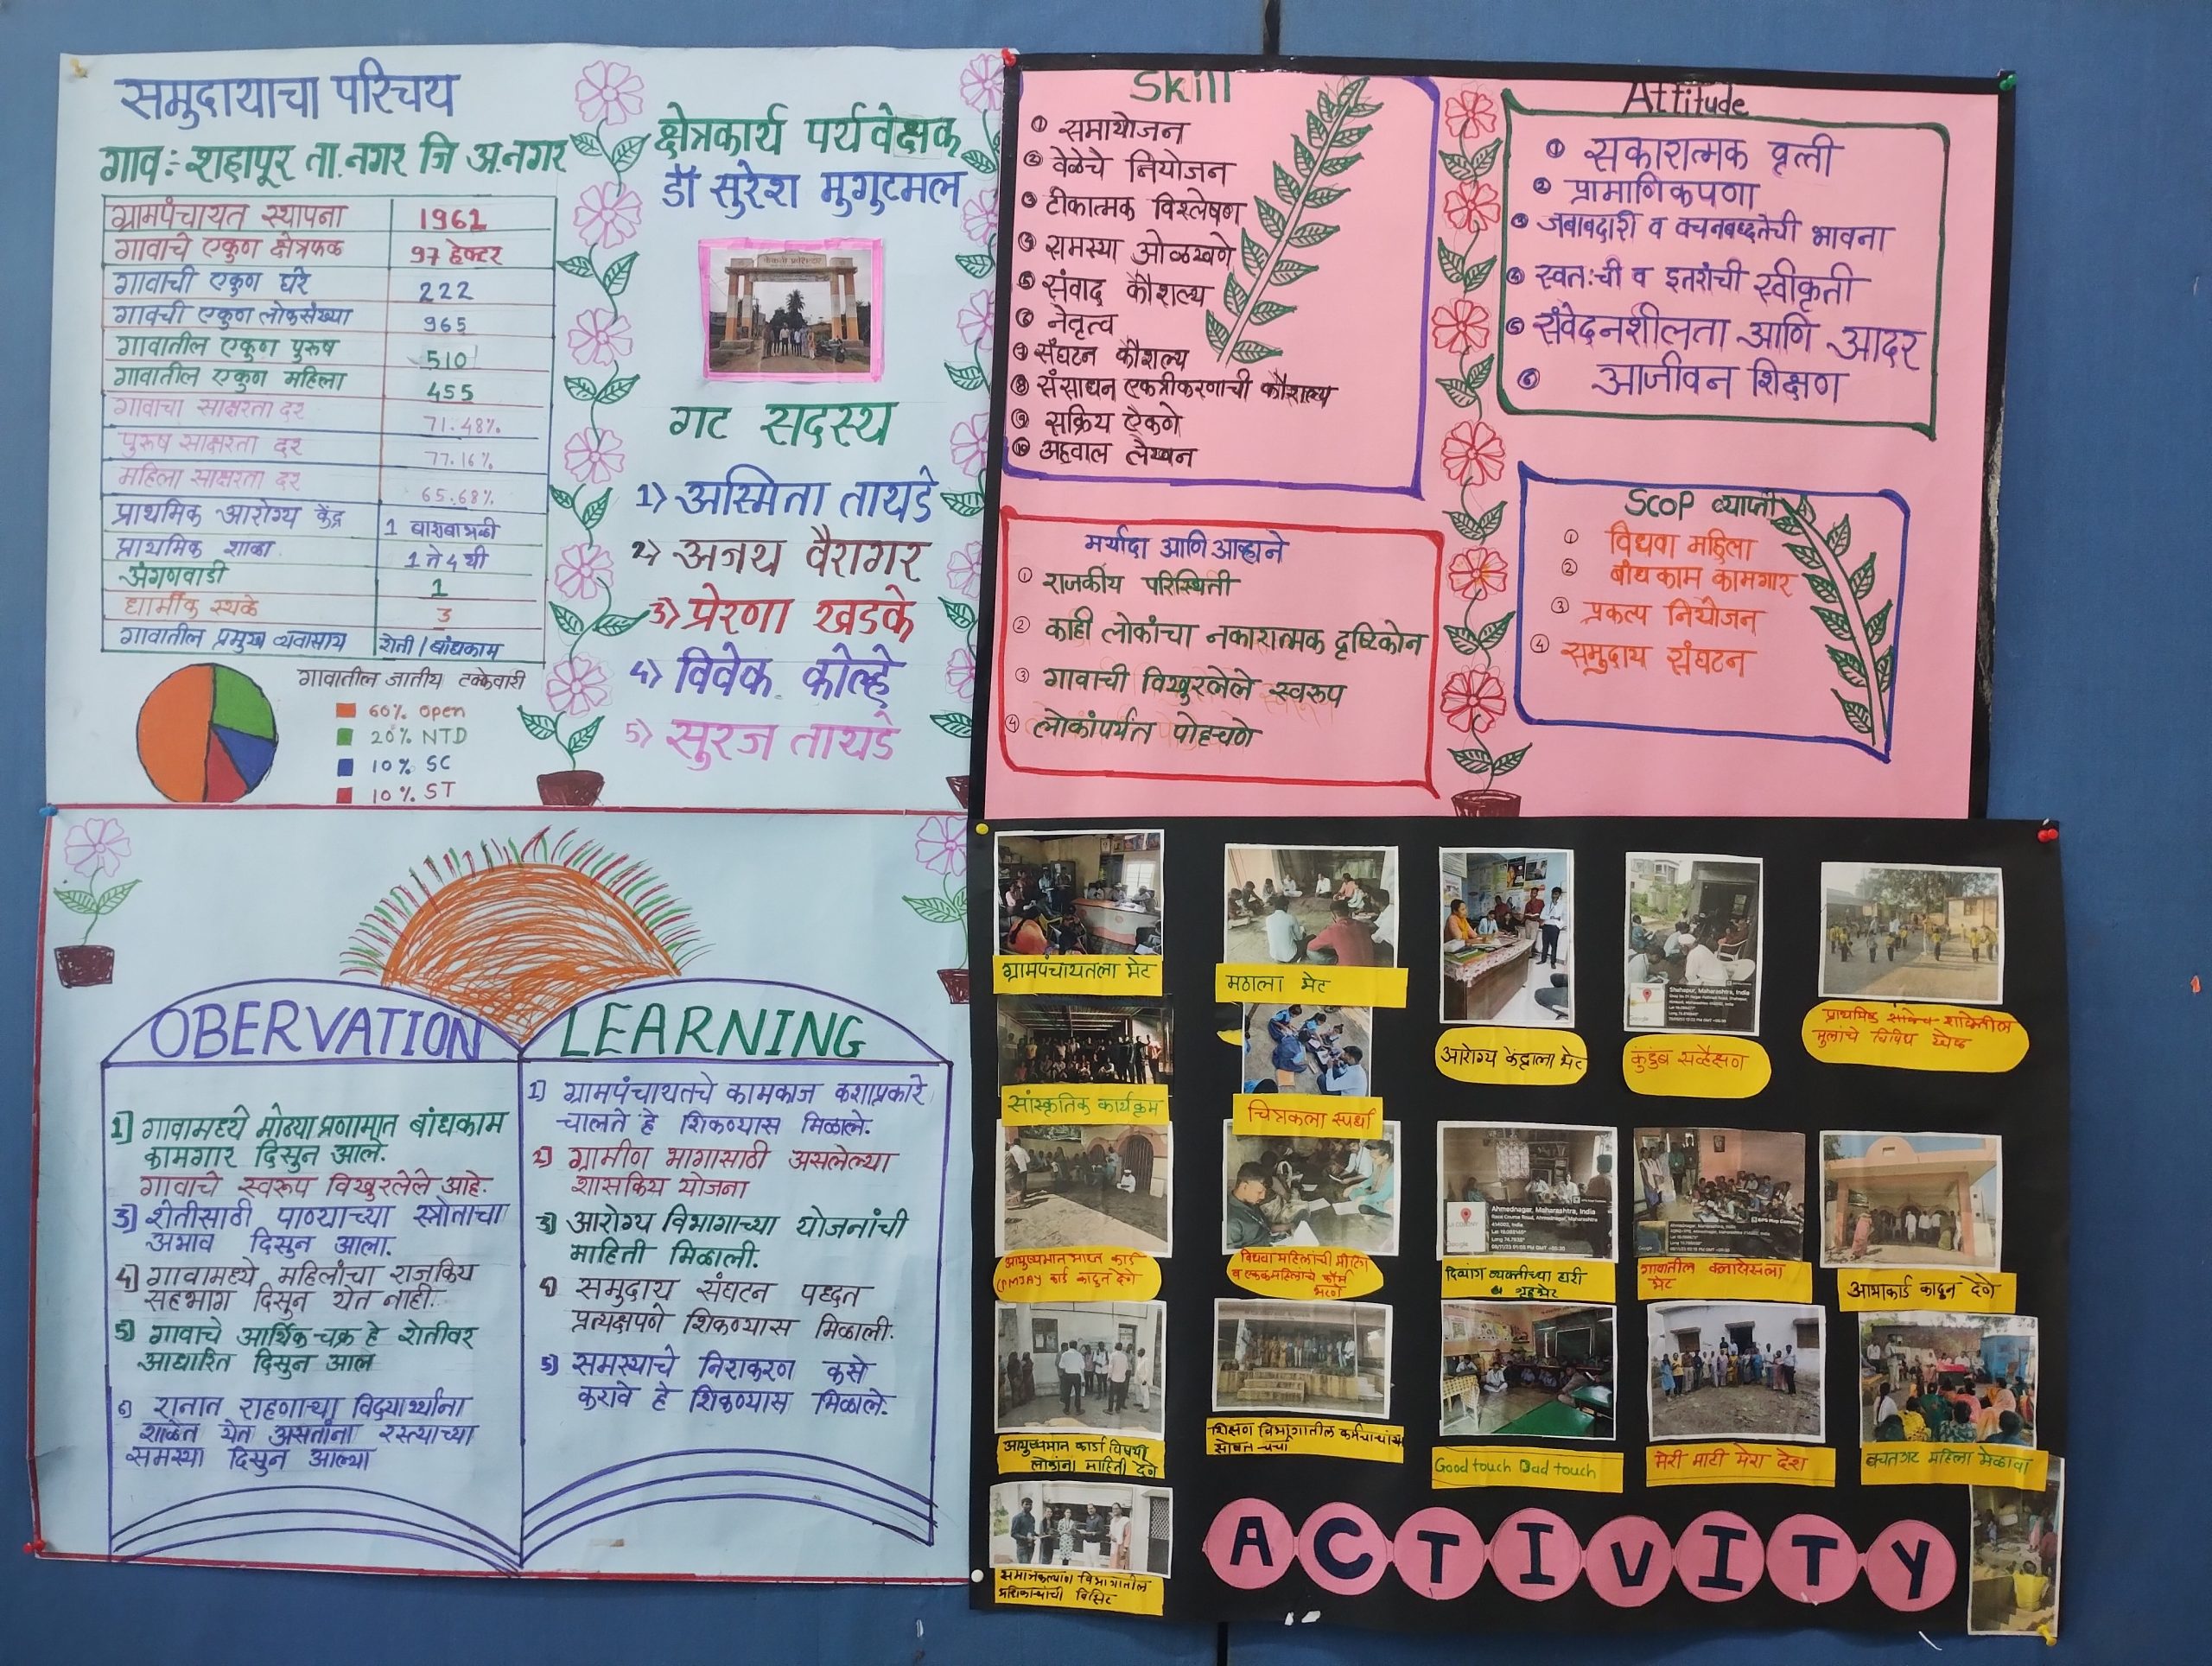 समुदायाचा परिचय
गाव:- शहापूर ता.नगर जि अ.नगर
ग्रामपंचायत स्थापना 1961
गावाचे एकुण क्षेत्रफळ 97 हेक्टर
गावाची एकुण घरे 222
गावची एकुण लोकसंख्या 965
गावातील एकुण पुरूष 510
गावातील एकुण महिला 455
गावाचा साक्षरता दर 71.48%
पुरूष साक्षरता दर 77.16%
महिला साक्षरता दर 65.68%
प्राथमिक आरोग्य केंद्र 1 बाराबाभळी
प्राथमिक शाळा 1 ते 4 थी
अंगणवाडी 1
धार्मीक स्थळे 3
गावातील प्रमुख व्यवासाय शेती / बांधकाम
गावातील जातीय टक्केवारी
60% Open
20% NTD
10% SC
10% ST
क्षेत्रकार्य पर्यवेक्षक
डॉ सुरेश मुगुटमल
गट सदस्य
1) अस्मिता तायडे
2) अजय वैरागर
3) प्रेरणा खडके
4) विवेक कोल्हे
5) सुरज तायडे
Skill
① समायोजन
② वेळेचे नियोजन
③ टीकात्मक विश्लेषण
④ समस्या ओळखणे
⑤ संवाद कौशल्य
⑥ नेतृत्व
⑦ संघटन कौशल्य
⑧ संसाधन एकत्रीकरणाची कौशल्य
⑨ सक्रिय ऐकणे
⑩ अहवाल लेखन
Attitude
① सकारात्मक वृत्ती
② प्रामाणिकपणा
③ जबाबदारी व वचनबध्दतेची भावना
④ स्वतःची व इतरांची स्वीकृती
⑤ संवेदनशीलता आणि आदर
⑥ आजीवन शिक्षण
मर्यादा आणि आव्हाने
① राजकीय परिस्थिती
② काही लोकांचा नकारात्मक दृष्टिकोन
③ गावाची विखुरलेले स्वरूप
④ लोकांपर्यंत पोहचणे
Scop व्याप्ती
① विधवा महिला
② बांधकाम कामगार
③ प्रकल्प नियोजन
④ समुदाय संघटन
OBERVATION
1] गावामध्ये मोठ्या प्रणामात बांधकाम
कामगार दिसुन आले.
गावाचे स्वरूप विखुरलेले आहे.
3] शेतीसाठी पाण्याच्या स्त्रोताचा
अभाव दिसुन आला.
4] गावामध्ये महिलांचा राजकिय
सहभाग दिसुन येत नाही.
5] गावाचे आर्थिक चक्र हे शेतीवर
आधारित दिसुन आल
6] रानात राहणाऱ्या विद्यार्थ्यांना
शाळेत येत असतांना रस्त्याच्या
समस्या दिसुन आल्या
LEARNING
1) ग्रामपंचायतचे कामकाज कशाप्रकारे
चालते हे शिकण्यास मिळाले.
2) ग्रामीण भागासाठी असलेल्या
शासकिय योजना
3) आरोग्य विभागाच्या योजनांची
माहिती मिळाली.
4) समुदाय संघटन पध्दत
प्रत्यक्षपणे शिकण्यास मिळाली.
5) समस्याचे निराकरण कसे
करावे हे शिकण्यास मिळाले.
ग्रामपंचायतला भेट
मठाला भेट
आरोग्य केंद्राला भेट
Shahapur, Maharashtra, India
कुटुंब सर्व्हेक्षण
प्राथमिक शाळेतील
मुलांचे विविध खेळ
सांस्कृतिक कार्यक्रम
चित्रकला स्पर्धा
आयुष्यमान भारत कार्ड
(PMJAY कार्ड काढून देणे
विधवा महिलांची मीटिंग
व एकल महिलांचे फॉर्म
भरणे
Ahmednagar, Maharashtra, India
दिव्यांग व्यक्तीच्या घरी
व गृहभेट
Ahmednagar, Maharashtra, India
गावातील क्लासेसला
भेट
आभाकार्ड काढून देणे
आयुष्यमान कार्डा विषयी
लोकांना माहिती देणे
शिक्षण विभागातील कर्मचाऱ्यां
सोबत चर्चा
Good touch Bad touch
मेरी माटी मेरा देश
बचतगट महिला मेळावा
समाजकल्याण विभागातील
अधिकाऱ्यांची विसिट
ACTIVITY